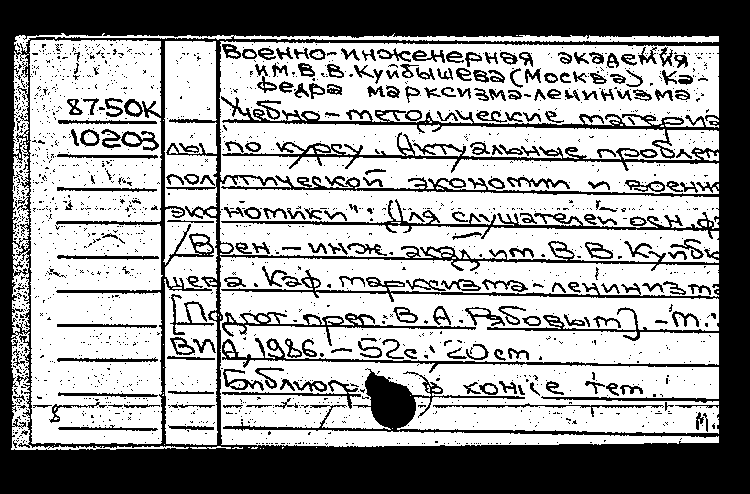 Военно-инженерная академия
им. В. В. Куйбышева (Москва). Ка-
федра марксизма-ленинизма.
87-50К Учебно-методические материа
10203 лы по курсу „Актуальные проблем
политической экономии и военно
экономики": Для слушателей осн. ф
/Воен.-инж. акад. им. В. В. Куйбы
шева. Каф. марксизма-ленинизма
[Подгот. преп. В. А. Рябовым]. - М.:
ВИА, 1986. - 52 с.; 20 см.
Библиогр. в конце тем.
8 М.